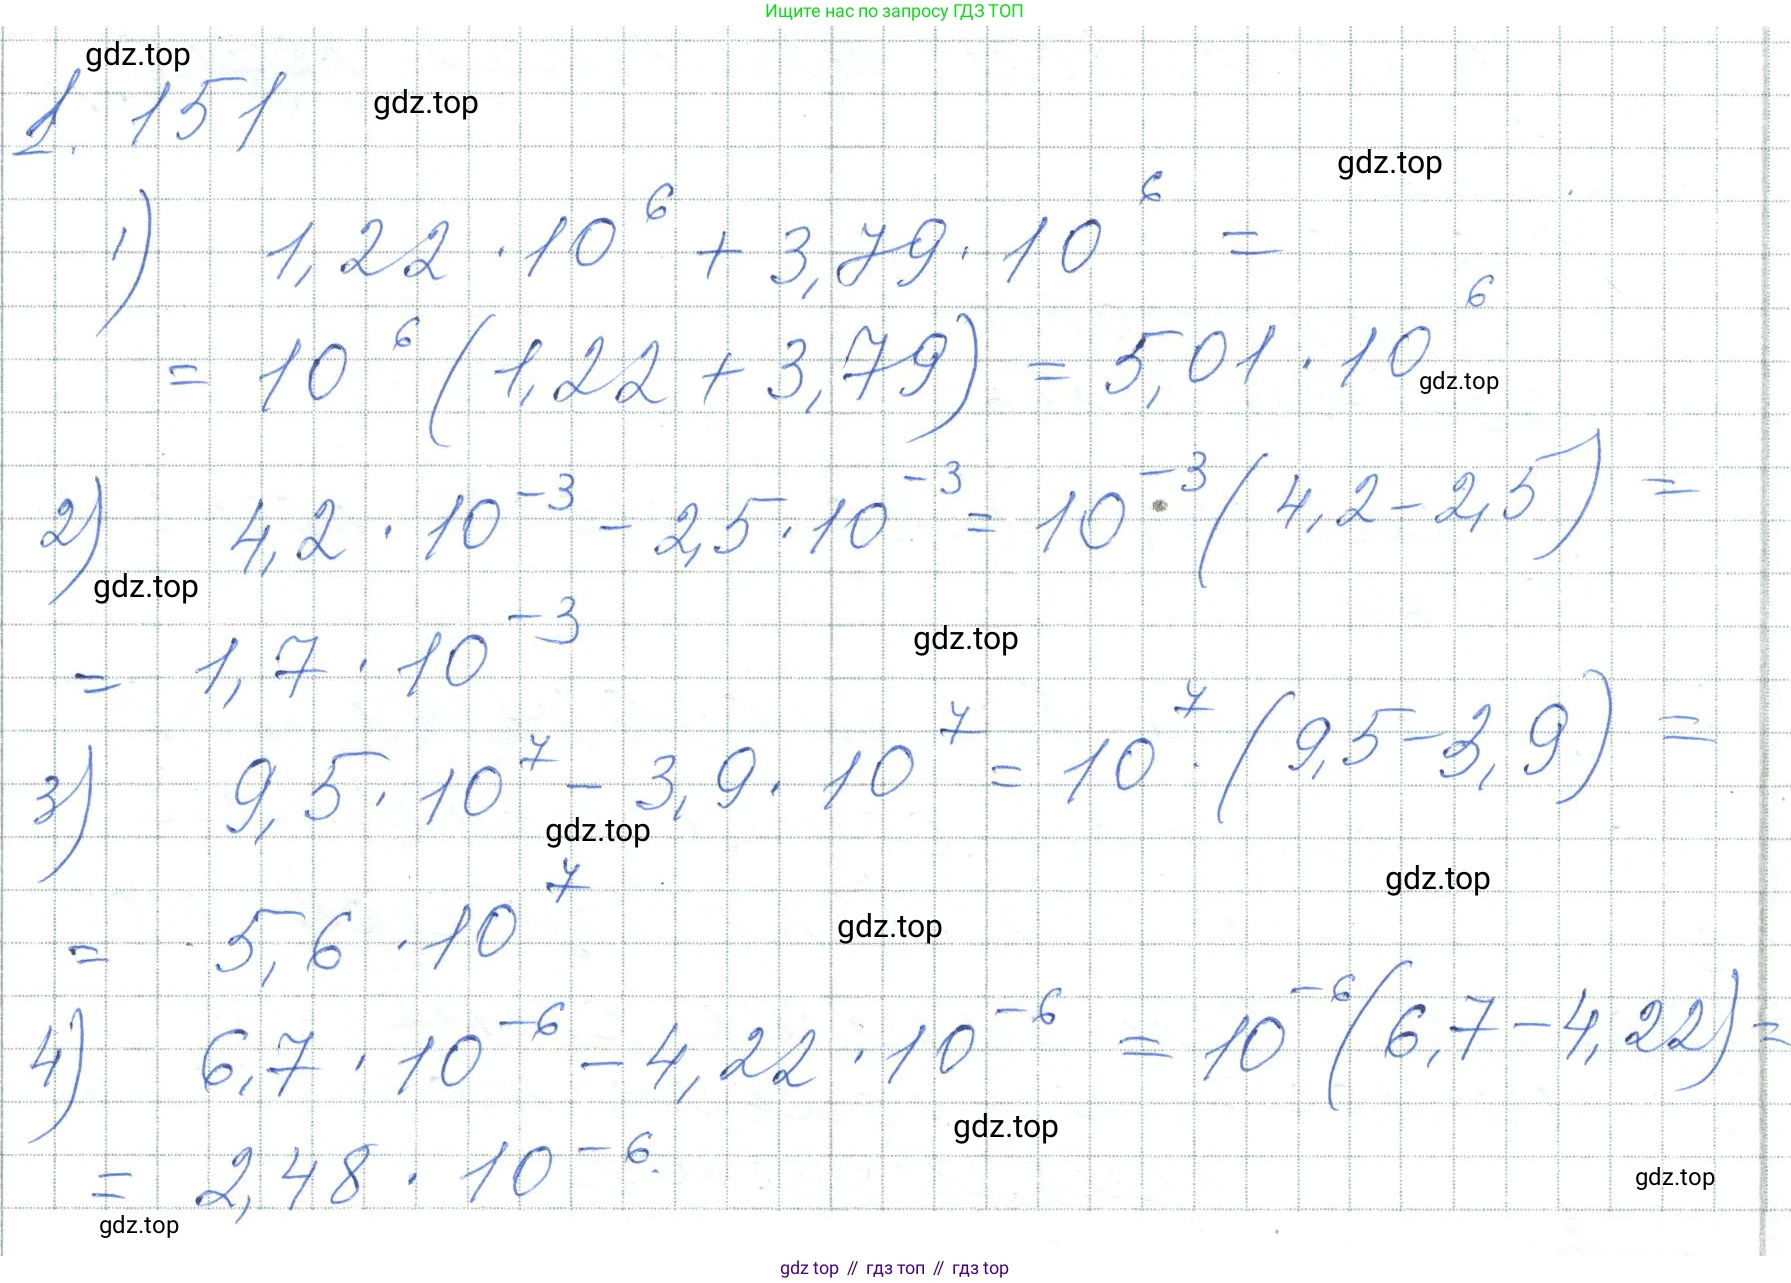 Ищите нас по запросу ГДЗ ТОП
gdz.top
1.151
gdz.top
gdz.top
1) 1,22 · 10⁶ + 3,79 · 10⁶ =
= 10⁶ (1,22 + 3,79) = 5,01 · 10⁶
gdz.top
2) 4,2 · 10⁻³ - 2,5 · 10⁻³ = 10⁻³ (4,2 - 2,5) =
gdz.top
= 1,7 · 10⁻³
gdz.top
3) 9,5 · 10⁷ - 3,9 · 10⁷ = 10⁷ · (9,5 - 3,9) =
gdz.top
gdz.top
= 5,6 · 10⁷
gdz.top
4) 6,7 · 10⁻⁶ - 4,22 · 10⁻⁶ = 10⁻⁶ (6,7 - 4,22) =
gdz.top
= 2,48 · 10⁻⁶.
gdz.top
gdz.top
gdz top // гдз топ // гдз top